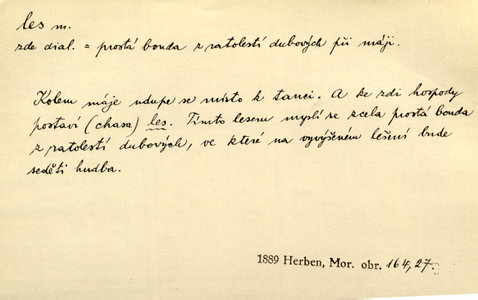 les m.
zde dial. = prostá bouda z ratolestí dubových při máji.
Kolem máje udupe se místo k tanci. A ke zdi hospody
postaví (chasa) les. Tímto lesem myslí se zcela prostá bouda
z ratolestí dubových, ve které na vyvýšeném lešení bude
seděti hudba.
1889 Herben, Mor. obr. 164, 27.